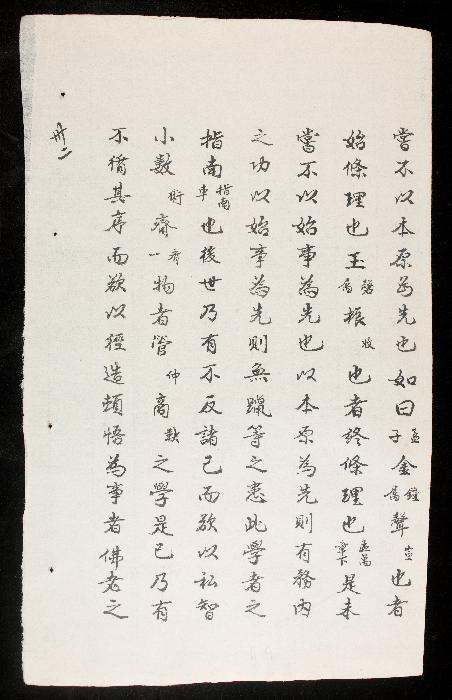 嘗不以本原為先也如曰孟子金鐘屬聲宣也者
始條理也玉磬屬振收也者終條理也孟萬章下是未
嘗不以始事為先也以本原為先則有務內
之功以始事為先則無躐等之患此學者之
指南指南車也後世乃有不反諸己而欲以私智
小數術齊一者物者管仲商鞅之學是已乃有
不循其序而欲以徑造頓悟為事者佛老之
卅二